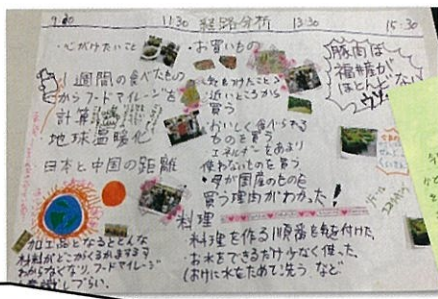 9:30 11:30 経路分析 13:30 15:30
・心がけたいこと
1週間の食べたもの
からフードマイレージを
計算
地球温暖化
・日本と中国の距離
加工品となるとどんな
材料がどこからくるかますます
わからなくなり、フードマイレージ
しづらい。
・お買いもの
近いところから
買う
・おいしく食べられる
ものを買う
エネルギーをあまり
使わないものを買う
・母が国産のものを
買う理由がわかった!
料理
・料理を作る順番を
・お水をできるだけ少なく使った。
に水をためて洗う など
豚肉は
福井産が
ほとんどない